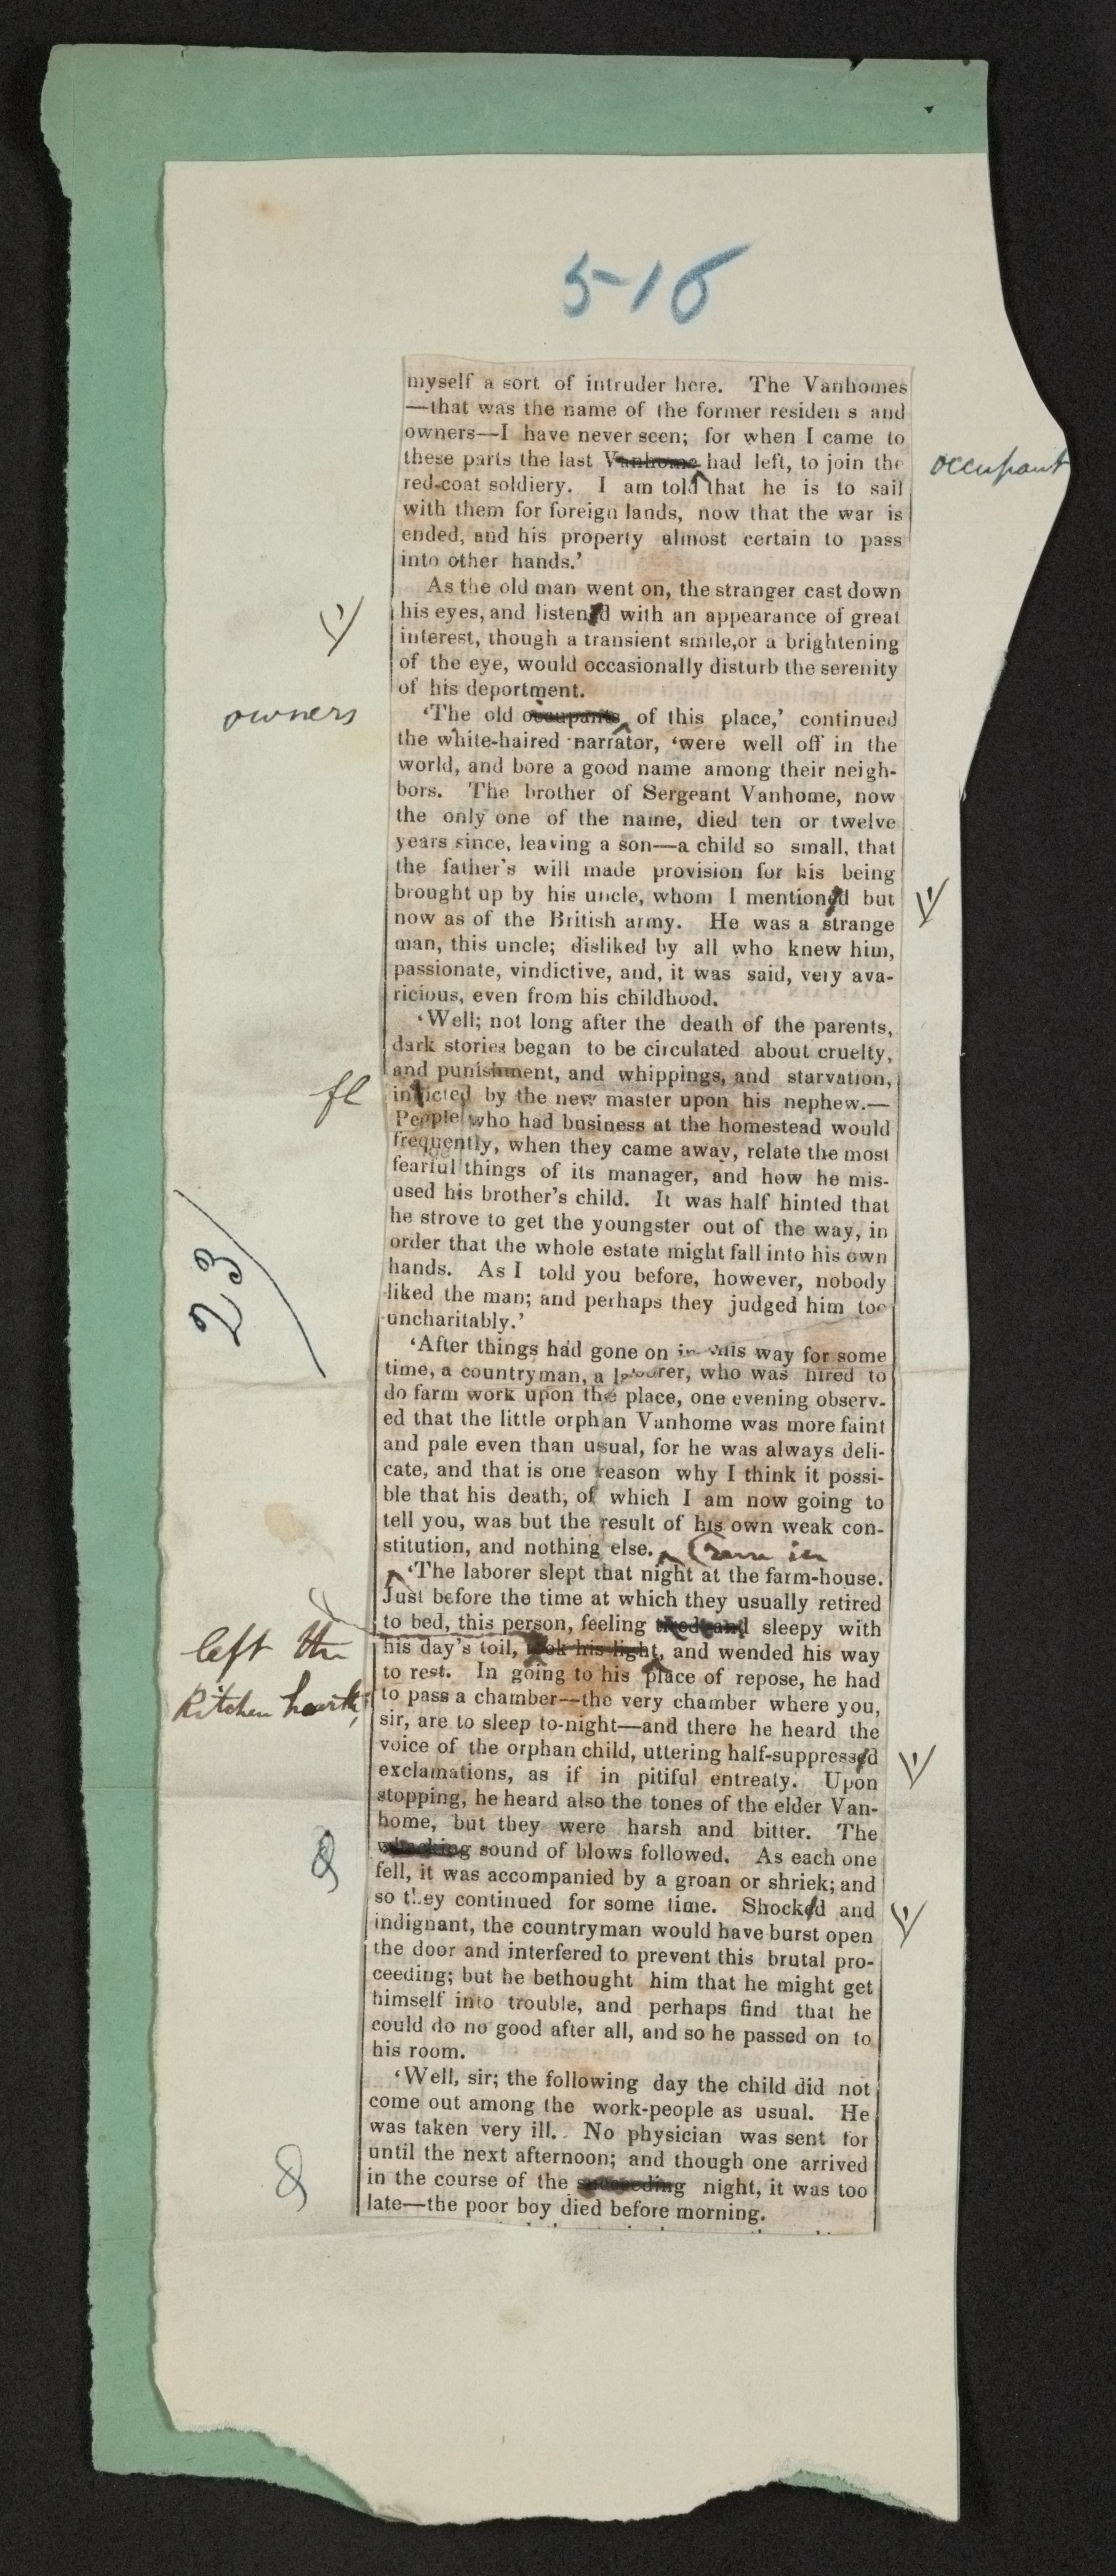 516
myself a sort of intruder here. The Vanhomes
—that was the name of the former residen s and
owners—I have never seen; for when I came to
these parts the last Vanhome had left, to join the
occupant
red-coat soldiery. I am told that he is to sail
with them for foreign lands, now that the war is
ended, and his property almost certain to pass
into other hands.'
As the old man went on, the stranger cast down
his eyes, and listened with an appearance of great
interest, though a transient smile, or a brightening
of the eye, would occasionally disturb the serenity
of his deportment.
owners
'The old occupants of this place,' continued
the white-haired narrator, 'were well off in the
world, and bore a good name among their neigh-
bors. The brother of Sergeant Vanhome, now
the only one of the name, died ten or twelve
years since, leaving a son—a child so small, that
the father's will made provision for his being
brought up by his uncle, whom I mentioned but
now as of the British army. He was a strange
man, this uncle; disliked by all who knew him,
passionate, vindictive, and, it was said, very ava-
ricious, even from his childhood.
'Well; not long after the death of the parents,
dark stories began to be circulated about cruelty,
and punishment, and whippings, and starvation,
fl
inflicted by the new master upon his nephew.—
People who had business at the homestead would
frequently, when they came away, relate the most
fearful things of its manager, and how he mis-
used his brother's child. It was half hinted that
he strove to get the youngster out of the way, in
order that the whole estate might fall into his own
23
hands. As I told you before, however, nobody
liked the man; and perhaps they judged him too
uncharitably.'
'After things had gone on in this way for some
time, a countryman, a laborer, who was hired to
do farm work upon the place, one evening observ-
ed that the little orphan Vanhome was more faint
and pale even than usual, for he was always deli-
cate, and that is one reason why I think it possi-
ble that his death, of which I am now going to
tell you, was but the result of his own weak con-
stitution, and nothing else. (run in
'The laborer slept that night at the farm-house.
Just before the time at which they usually retired
to bed, this person, feeling tired and sleepy with
left the
his day's toil, took his light, and wended his way
kitchen hearth,
to rest. In going to his place of repose, he had
to pass a chamber—the very chamber where you,
sir, are to sleep to-night—and there he heard the
voice of the orphan child, uttering half-suppressed
exclamations, as if in pitiful entreaty. Upon
stopping, he heard also the tones of the elder Van-
home, but they were harsh and bitter. The
sound of blows followed. As each one
fell, it was accompanied by a groan or shriek; and
so they continued for some time. Shocked and
indignant, the countryman would have burst open
the door and interfered to prevent this brutal pro-
ceeding; but he bethought him that he might get
himself into trouble, and perhaps find that he
could do no good after all, and so he passed on to
his room.
'Well, sir; the following day the child did not
come out among the work-people as usual. He
was taken very ill. No physician was sent for
until the next afternoon; and though one arrived
in the course of the night, it was too
late—the poor boy died before morning.